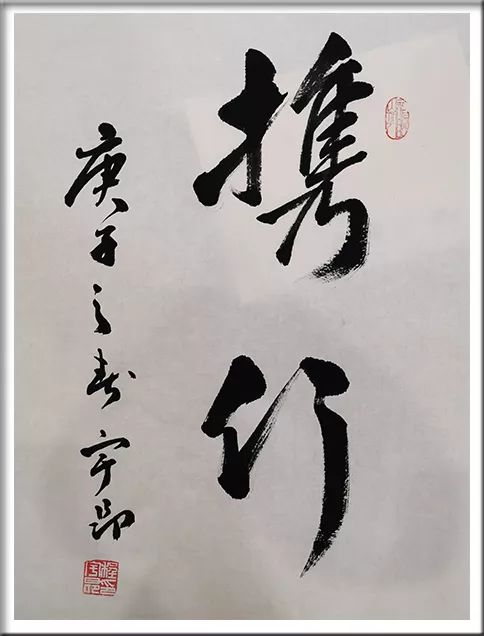 携行
庚子之春宇昂